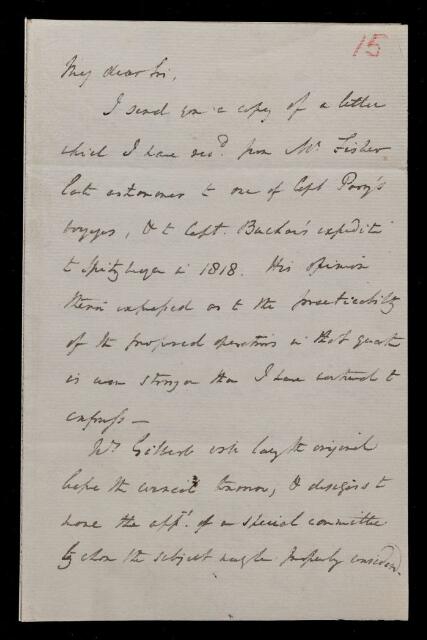 15
My dear Sir,
I send you a copy of a letter
which I have recd. from Mr. Fisher
late astronomer to one of Capt Parry's
voyages, & to Capt. Buchan's expedition
to Spitzbergen in 1818. His opinion
therein expressed as to the practicability
of the proposed operations in that quarter
is even stronger than I have ventured to
express —
Mr Gilbert will lay the original
before the council tomorrow, & designs to
move the appt. of a special committee
by whom the subject might be properly considered.